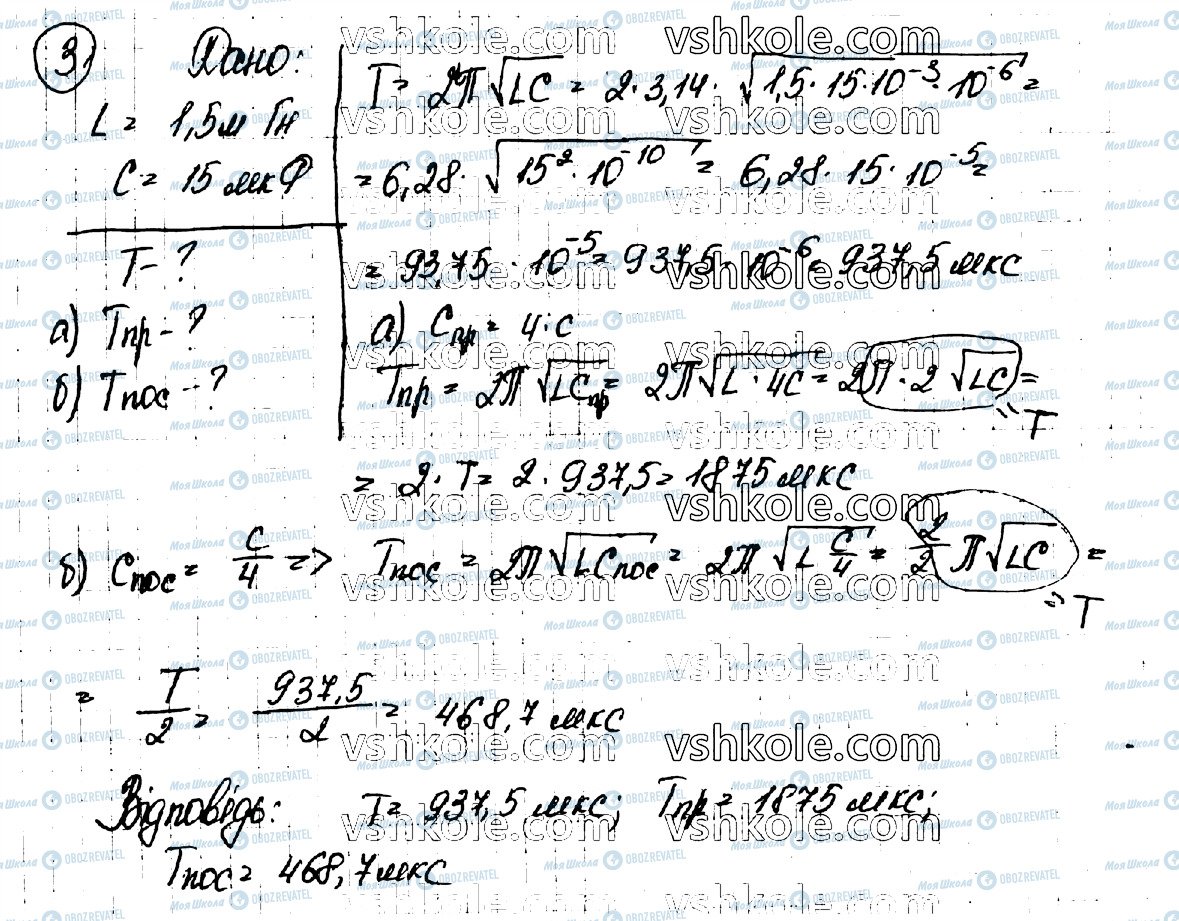 3. Дано:
L = 1,5 м Гн
C = 15 мкФ
T - ?
а) Tпр - ?
б) Tпос - ?
T = 2π√LC = 2·3,14·√1,5·15·10⁻³·10⁻⁶ =
= 6,28·√15²·10⁻¹⁰ = 6,28·15·10⁻⁵ =
= 93,75·10⁻⁵ = 937,5·10⁻⁶ = 937,5 мкс
а) Cпр = 4·C
Tпр = 2π√LCпр = 2π√L·4C = 2π·2√LC =
= T
= 2·T = 2·937,5 = 1875 мкс
б) Cпос = C/4 => Tпос = 2π√LCпос = 2π√L C/4 = 2/2 π√LC =
= T
= T/2 = 937,5/2 = 468,7 мкс
Відповідь: T = 937,5 мкс; Tпр = 1875 мкс;
Tпос = 468,7 мкс
vshkole.com
Моя Школа OBOZREVATEL